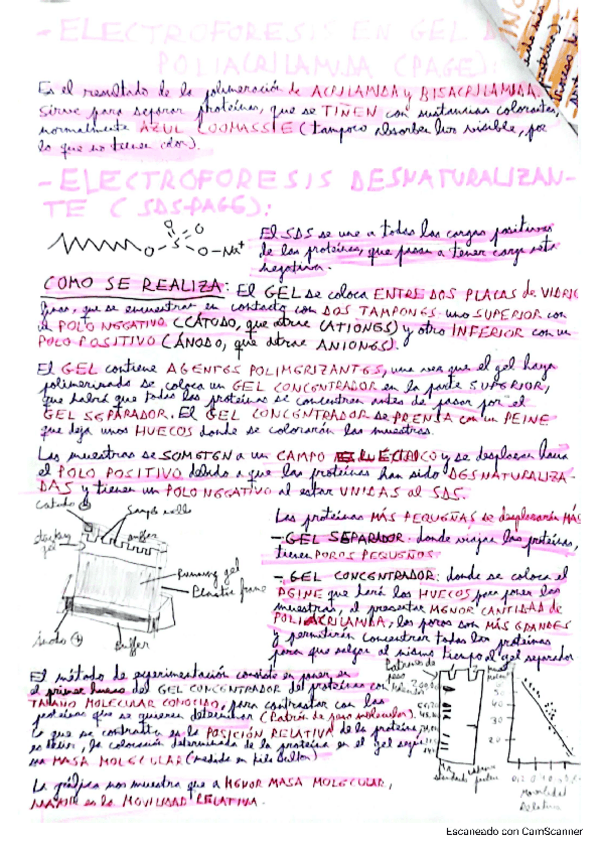 - ELECTROFORESIS EN GEL
POLIACRILAMIDA (PAGE):
Es el resultado de la polimeración de ACRILAMIDA y BISACRILAMIDA.
Sirve para separar proteínas, que se TIÑEN con sustancias colorantes,
normalmente AZUL COOMASSIE (tampoco absorben luz visible, por
lo que no tienen color).
- ELECTROFORESIS DESNATURALIZAN-
TE (SDS-PAGE):
El SDS se une a todas las cargas positivas
de las proteínas, que pasan a tener carga neta
negativa.
O S O O O-Na+
COMO SE REALIZA: El GEL se coloca ENTRE DOS PLACAS de VIDRIO
que se encuentran en contacto con DOS TAMPONES: uno SUPERIOR con
el POLO NEGATIVO (CÁTODO, que atrae CATIONES) y otro INFERIOR con un
POLO POSITIVO (ÁNODO, que atrae ANIONES).
El GEL contiene AGENTES POLIMERIZANTES, una vez que el gel haya
polimerizado se coloca un GEL CONCENTRADOR en la parte SUPERIOR,
que habrá que todas las proteínas se concentren antes de pasar por el
GEL SEPARADOR. El GEL CONCENTRADOR se PRENSA con un PEINE
que deja unos HUECOS donde se colocarán las muestras.
Las muestras se SOMETEN a un CAMPO ELÉCTRICO y se desplazan hacia
el POLO POSITIVO debido a que las proteínas han sido DESNATURALIZA-
DAS y tienen un POLO NEGATIVO al estar UNIDAS al SDS.
Catodo
Sample wells
stacking gel
buffer
Running gel
Plastic frame
Ánodo +
Buffer
Las proteínas MÁS PEQUEÑAS se desplazarán MÁS
- GEL SEPARADOR: donde viajan las proteínas,
tienen POROS PEQUEÑOS
- GEL CONCENTRADOR: donde se coloca el
PEINE que hará los HUECOS para poner las
muestras, al presentar MENOR CANTIDAD de
POLIACRILAMIDA, los poros son MÁS GRANDES
y permitirán concentrar todas las proteínas
para que salgan al mismo tiempo al gel separador
El método de experimentación consiste en poner en
el primer hueco del GEL CONCENTRADOR del proteínas con
TAMAÑO MOLECULAR CONOCIDO, para contrastar con las
proteínas que se quieren determinar (Patrón de peso molecular).
Lo que se contrasta es la POSICIÓN RELATIVA de la proteína,
es decir, la colocación determinada de la proteína en el gel según
su MASA MOLECULAR (medida en kilo Dalton)
La gráfica nos muestra que a MENOR MASA MOLECULAR,
MAYOR es la MOVILIDAD RELATIVA.
50
40
30
20
Movilidad
Relativa
Escaneado con CamScanner